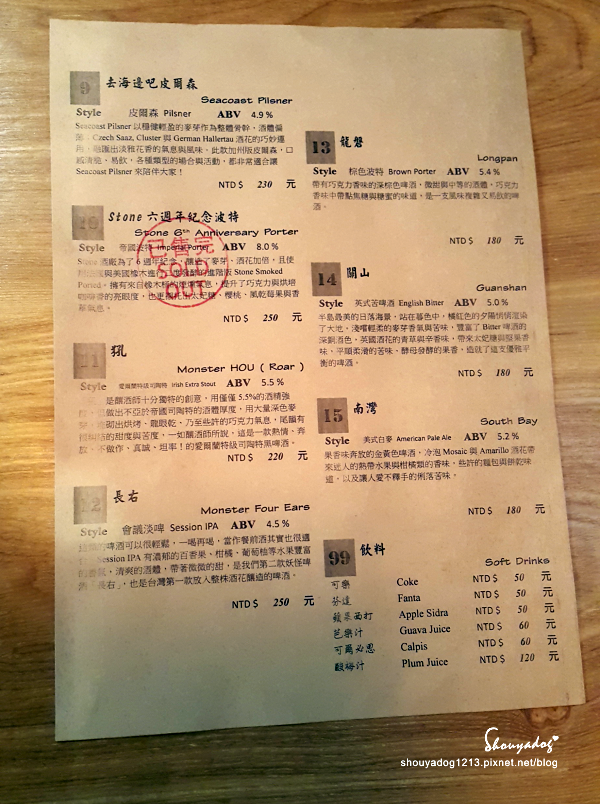 9 去海邊吧皮爾森
Seacoast Pilsner
Style 皮爾森 Pilsner ABV 4.9 %
Seacoast Pilsner 以穩健輕盈的麥芽作為整體骨幹，酒體偏
Czech Saaz, Cluster 與 German Hallertau 酒花的巧妙運
用，融匯出淡雅花香的氣息與風味。此款加州版皮爾森，口
感清脆、易飲，各種類型的場合與活動，都非常適合讓
Seacoast Pilsner 來陪伴大家！
NTD $ 230 元
10 Stone 六週年紀念波特
Stone 6th Anniversary Porter
Style 帝國波特 Imperial Porter ABV 8.0 %
Stone 酒廠為了 6 週年紀念，釀造了麥芽、酒花加倍，且使
與美國橡木進階版 Stone Smoked
Porter。擁有來自橡木桶的煙燻氣息，提升了巧克力與烘焙
的亮眼度，也更襯托出太妃糖、櫻桃、風乾莓果與香
草氣息。
已售完
SOLD
OUT
NTD $ 250 元
11 犼
Monster HOU ( Roar )
Style 愛爾蘭特級司陶特 Irish Extra Stout ABV 5.5 %
是釀酒師十分獨特的創意，用僅僅 5.5%的酒精強
度，做出不亞於帝國司陶特的酒體厚度，用大量深色麥
芽，砌出烘烤、龍眼乾、乃至些許的巧克力氣息，尾韻有
的甜度與苦度，一如釀酒師所說，這是一款熱情、奔
放、不做作、真誠、坦率！的愛爾蘭特級司陶特黑啤酒。
NTD $ 220 元
12 長右
Monster Four Ears
Style 會議淡啤 Session IPA ABV 4.5 %
啤酒可以很輕鬆，一喝再喝，當作餐前酒其實也很適
Session IPA 有濃郁的百香果、柑橘、葡萄柚等水果豐富
的香氣，清爽的酒體，帶著微微的甜，是我們第二款妖怪啤
酒「長右」，也是台灣第一款放入整株酒花釀造的啤酒。
NTD $ 250 元
13 龍磐
Longpan
Style 棕色波特 Brown Porter ABV 5.4 %
帶有巧克力香味的深棕色啤酒，微甜與中等的酒體。巧克力
香味中帶點焦糖與糖蜜的味道，是一支風味複雜又易飲的啤
酒。
NTD $ 180 元
14 關山
Guanshan
Style 英式苦啤酒 English Bitter ABV 5.0 %
半島最美的日落海景，站在暮色中，橘紅色的夕陽悄悄渲染
了大地。淺嚐輕柔的麥芽香氣與苦味，豐富了 Bitter 啤酒的
深銅酒色。英國酒花的青草與辛香味，帶來太妃糖與堅果香
味，平順柔滑的苦味。酵母發酵的果香，造就了這支優雅平
衡的啤酒。
NTD $ 180 元
15 南灣
South Bay
Style 美式白麥 American Pale Ale ABV 5.2 %
果香味奔放的金黃色啤酒，冷泡 Mosaic 與 Amarillo 酒花帶
來迷人的熱帶水果與柑橘類的香味，些許的麵包與餅乾味
道，以及讓人愛不釋手的俐落苦味。
NTD $ 180 元
99 飲料
Soft Drinks
可樂 Coke NTD $ 50 元
芬達 Fanta NTD $ 50 元
蘋果西打 Apple Sidra NTD $ 50 元
芭樂汁 Guava Juice NTD $ 60 元
可爾必思 Calpis NTD $ 60 元
酸梅汁 Plum Juice NTD $ 120 元
Shouyadog
shouyadog1213.pixnet.net/blog